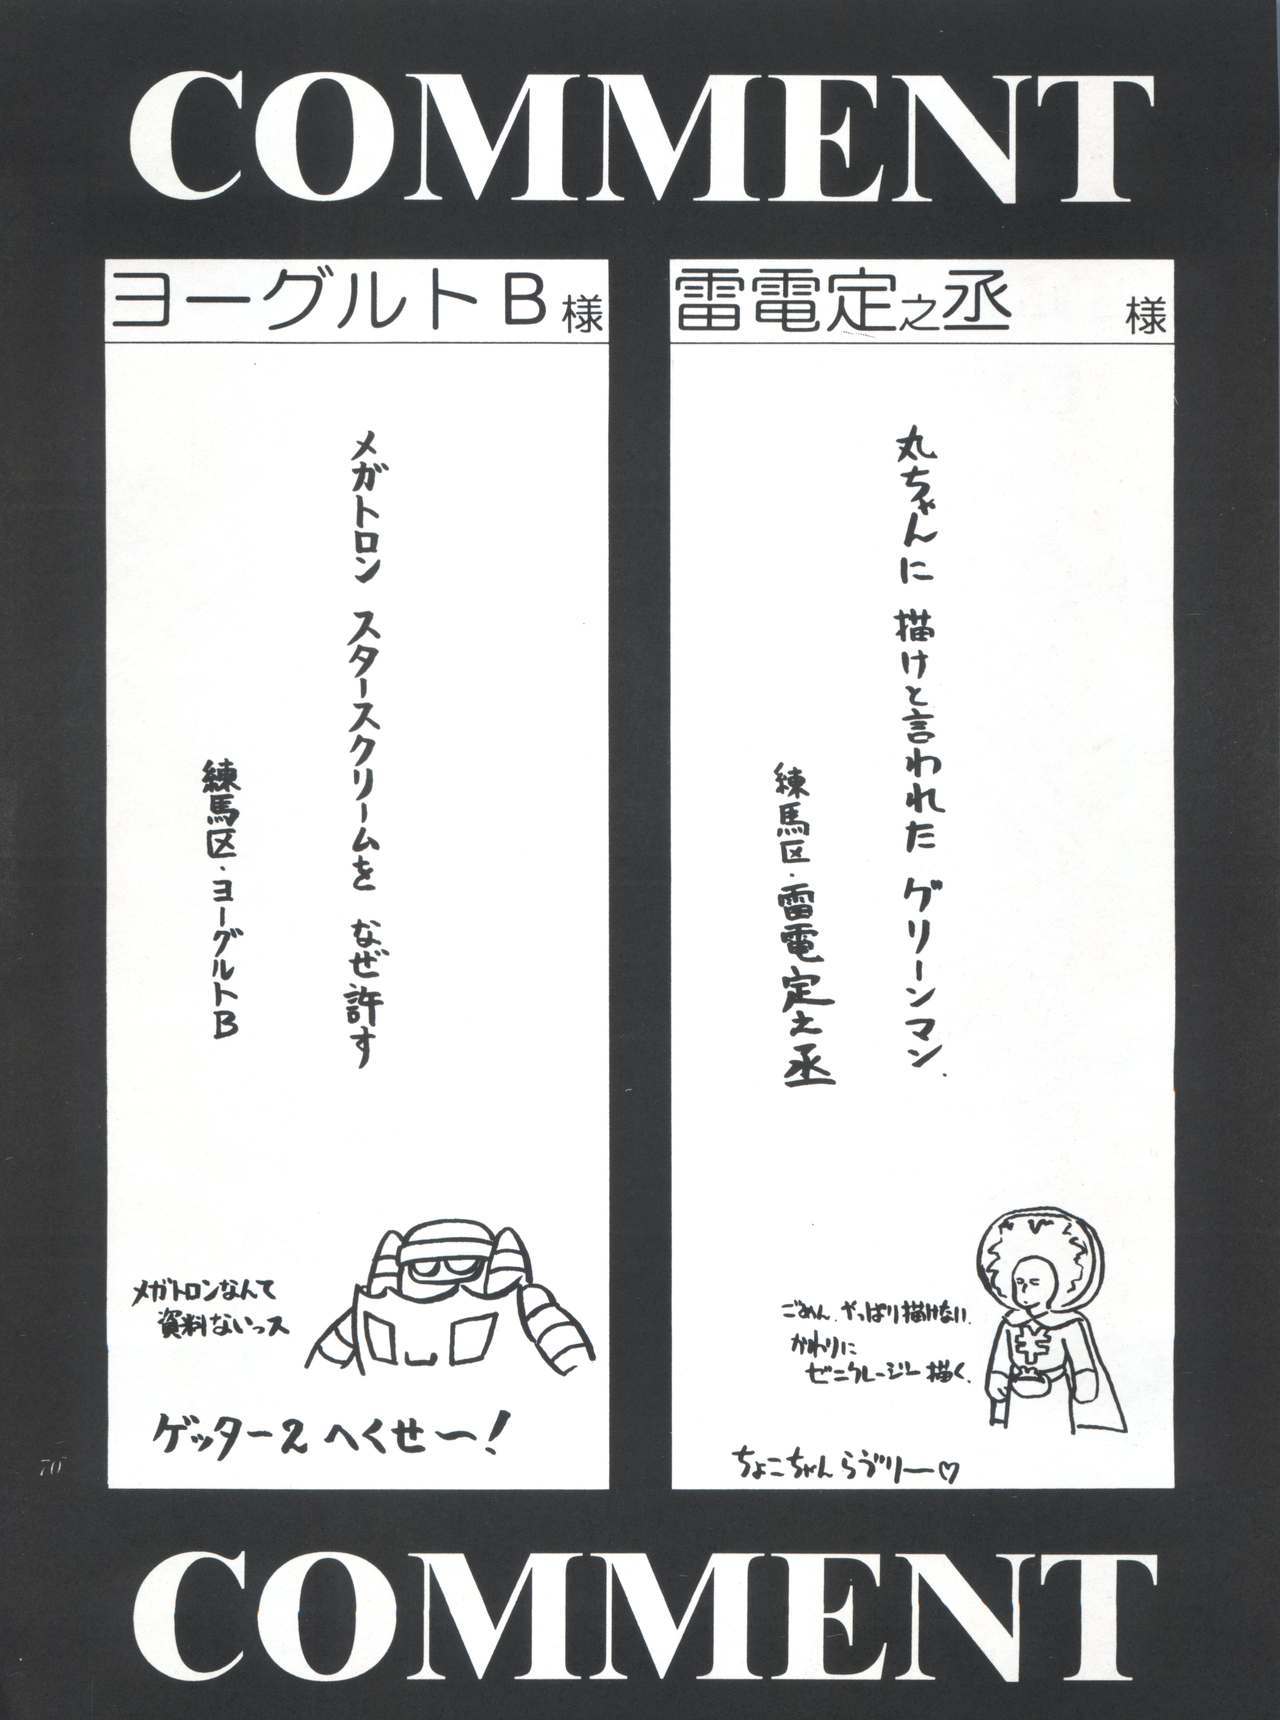 COMMENT
雷電定之丞 様
丸ちゃんに 描けと言われた グリーンマン.
練馬区・雷電定之丞
ごめん、やっぱり描けない.
かわりに
ゼニクレージー描く.
ちょこちゃんらぶりー♡
ヨーグルトB 様
メガトロン スタースクリームを なぜ許す
練馬区・ヨーグルトB
メガトロンなんて
資料ないっス
ゲッター2 へくせー!
70
COMMENT